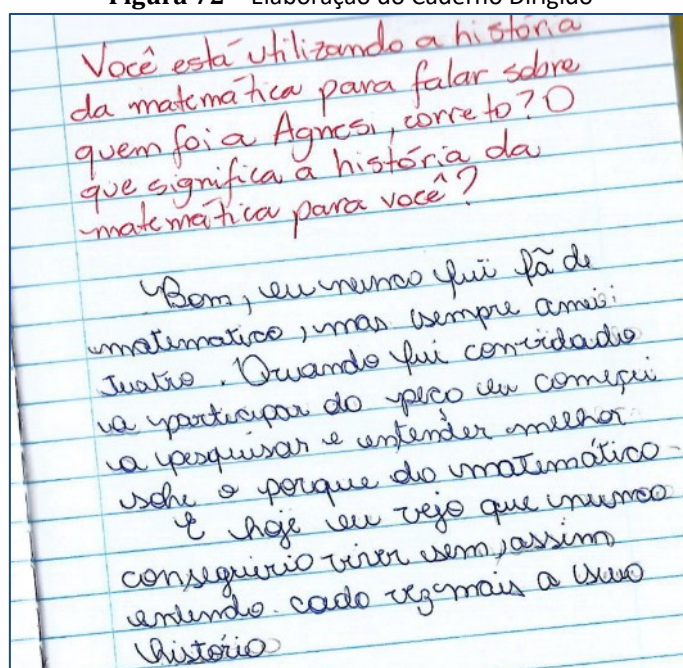 Figura 72 – Elaboração do Caderno Dirigido
Você está utilizando a história
da matemática para falar sobre
quem foi a Agnesi, correto? O
que significa a história da
matemática para você?
Bom, eu nunca fui fã de
matematica, mas sempre amei
Teatro. Quando fui convidada
a participar da peça eu começei
a pesquisar e entender melhor
sobre o porque da matemática.
E hoje eu vejo que nunca
conseguiria viver sem, assim
entendo cada vez mais a sua
história